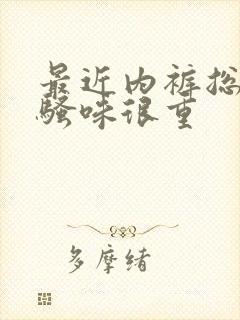 最近内裤总
骚味很重
多摩绪